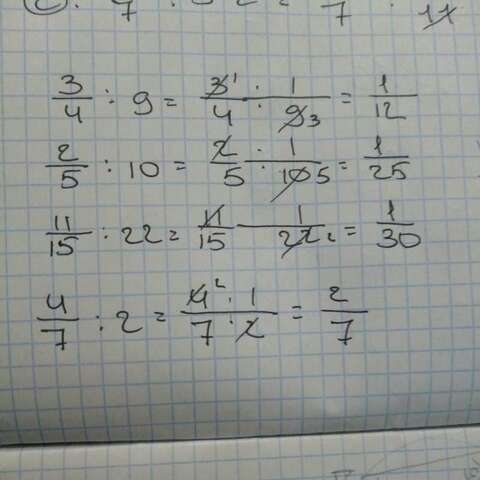 3/4 : 9 = 3¹/4 : 1/9 3 = 1/12
2/5 : 10 = 2/5 : 1/10 5 = 1/25
11/15 : 22 = 11/15 1/22 2 = 1/30
4/7 : 2 = 4² · 1/7 · 2 = 2/7